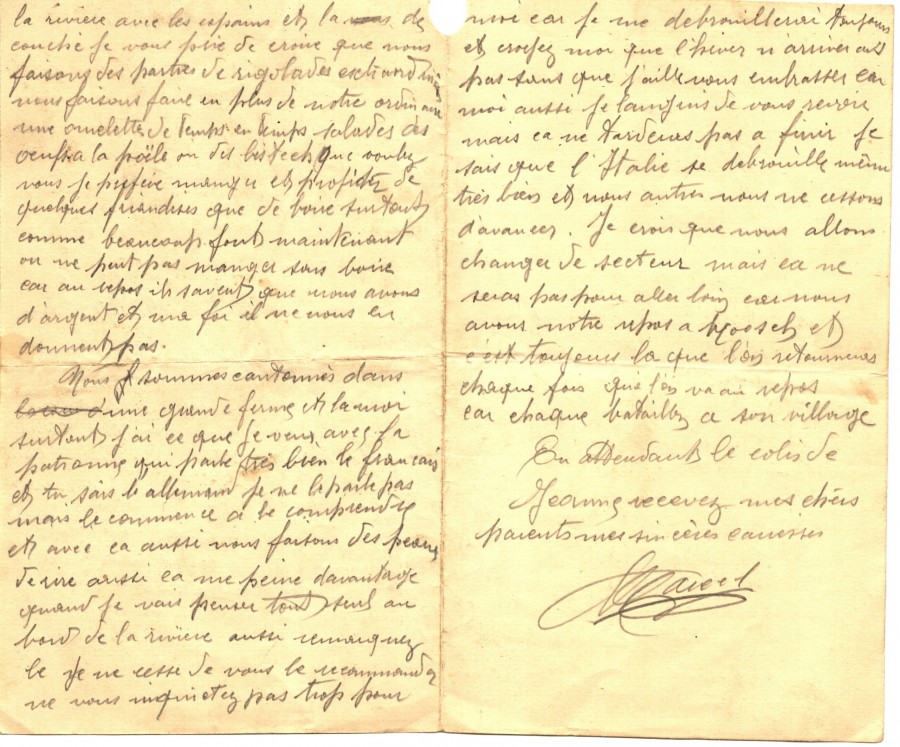 la rivière avec les copains et la de
couché je vous prie de croire que nous
faisons des parties de rigolades esctraordinaires
nous faisons faire en plus de notre ordinaire
une omelette de temps en temps salades des
oeufs a la poële ou des bistech que voulez
vous je préfère manger et profiter de
quelques friandises que de boire surtout
comme beaucoup font maintenant
on ne peut pas manger sans boire
car au repos ils savent que nous avons
d'argent et ma foi il ne nous en
donnent pas.
Nous sommes cantonnés dans
une grande ferme et la moi
surtout j'ai ce que je veux avec la
patronne qui parle très bien le français
et tu sais le allemand je ne le parle pas
mais le commence a le comprendre
et avec ca aussi nous faisons des
de rire aussi ca me peine davantage
quand je vais penser tout seul au
bord de la rivière aussi remarquez
le je ne cesse de vous le recommander
ne vous inquietez pas trop pour
moi car je me debrouillerai toujours
et croyez moi que l'hiver n'arrivera
pas sans que j'aille vous embrasser car
moi aussi je languis de vous revoir
mais ca ne tarderas pas a finir je
sais que l'Italie se debrouille même
très bien et nous autres nous ne cessons
d'avancer. Je crois que nous allons
changer de secteur mais ca ne
seras pas pour aller loin car nous
avons notre repos a Moosch et
c'est toujours la que l'on retourneras
chaque fois que l'on va au repos
car chaque bataillon a son village
En attendant le colis de
Jeanne recevez mes chers
parents mes sincères caresses
Marcel